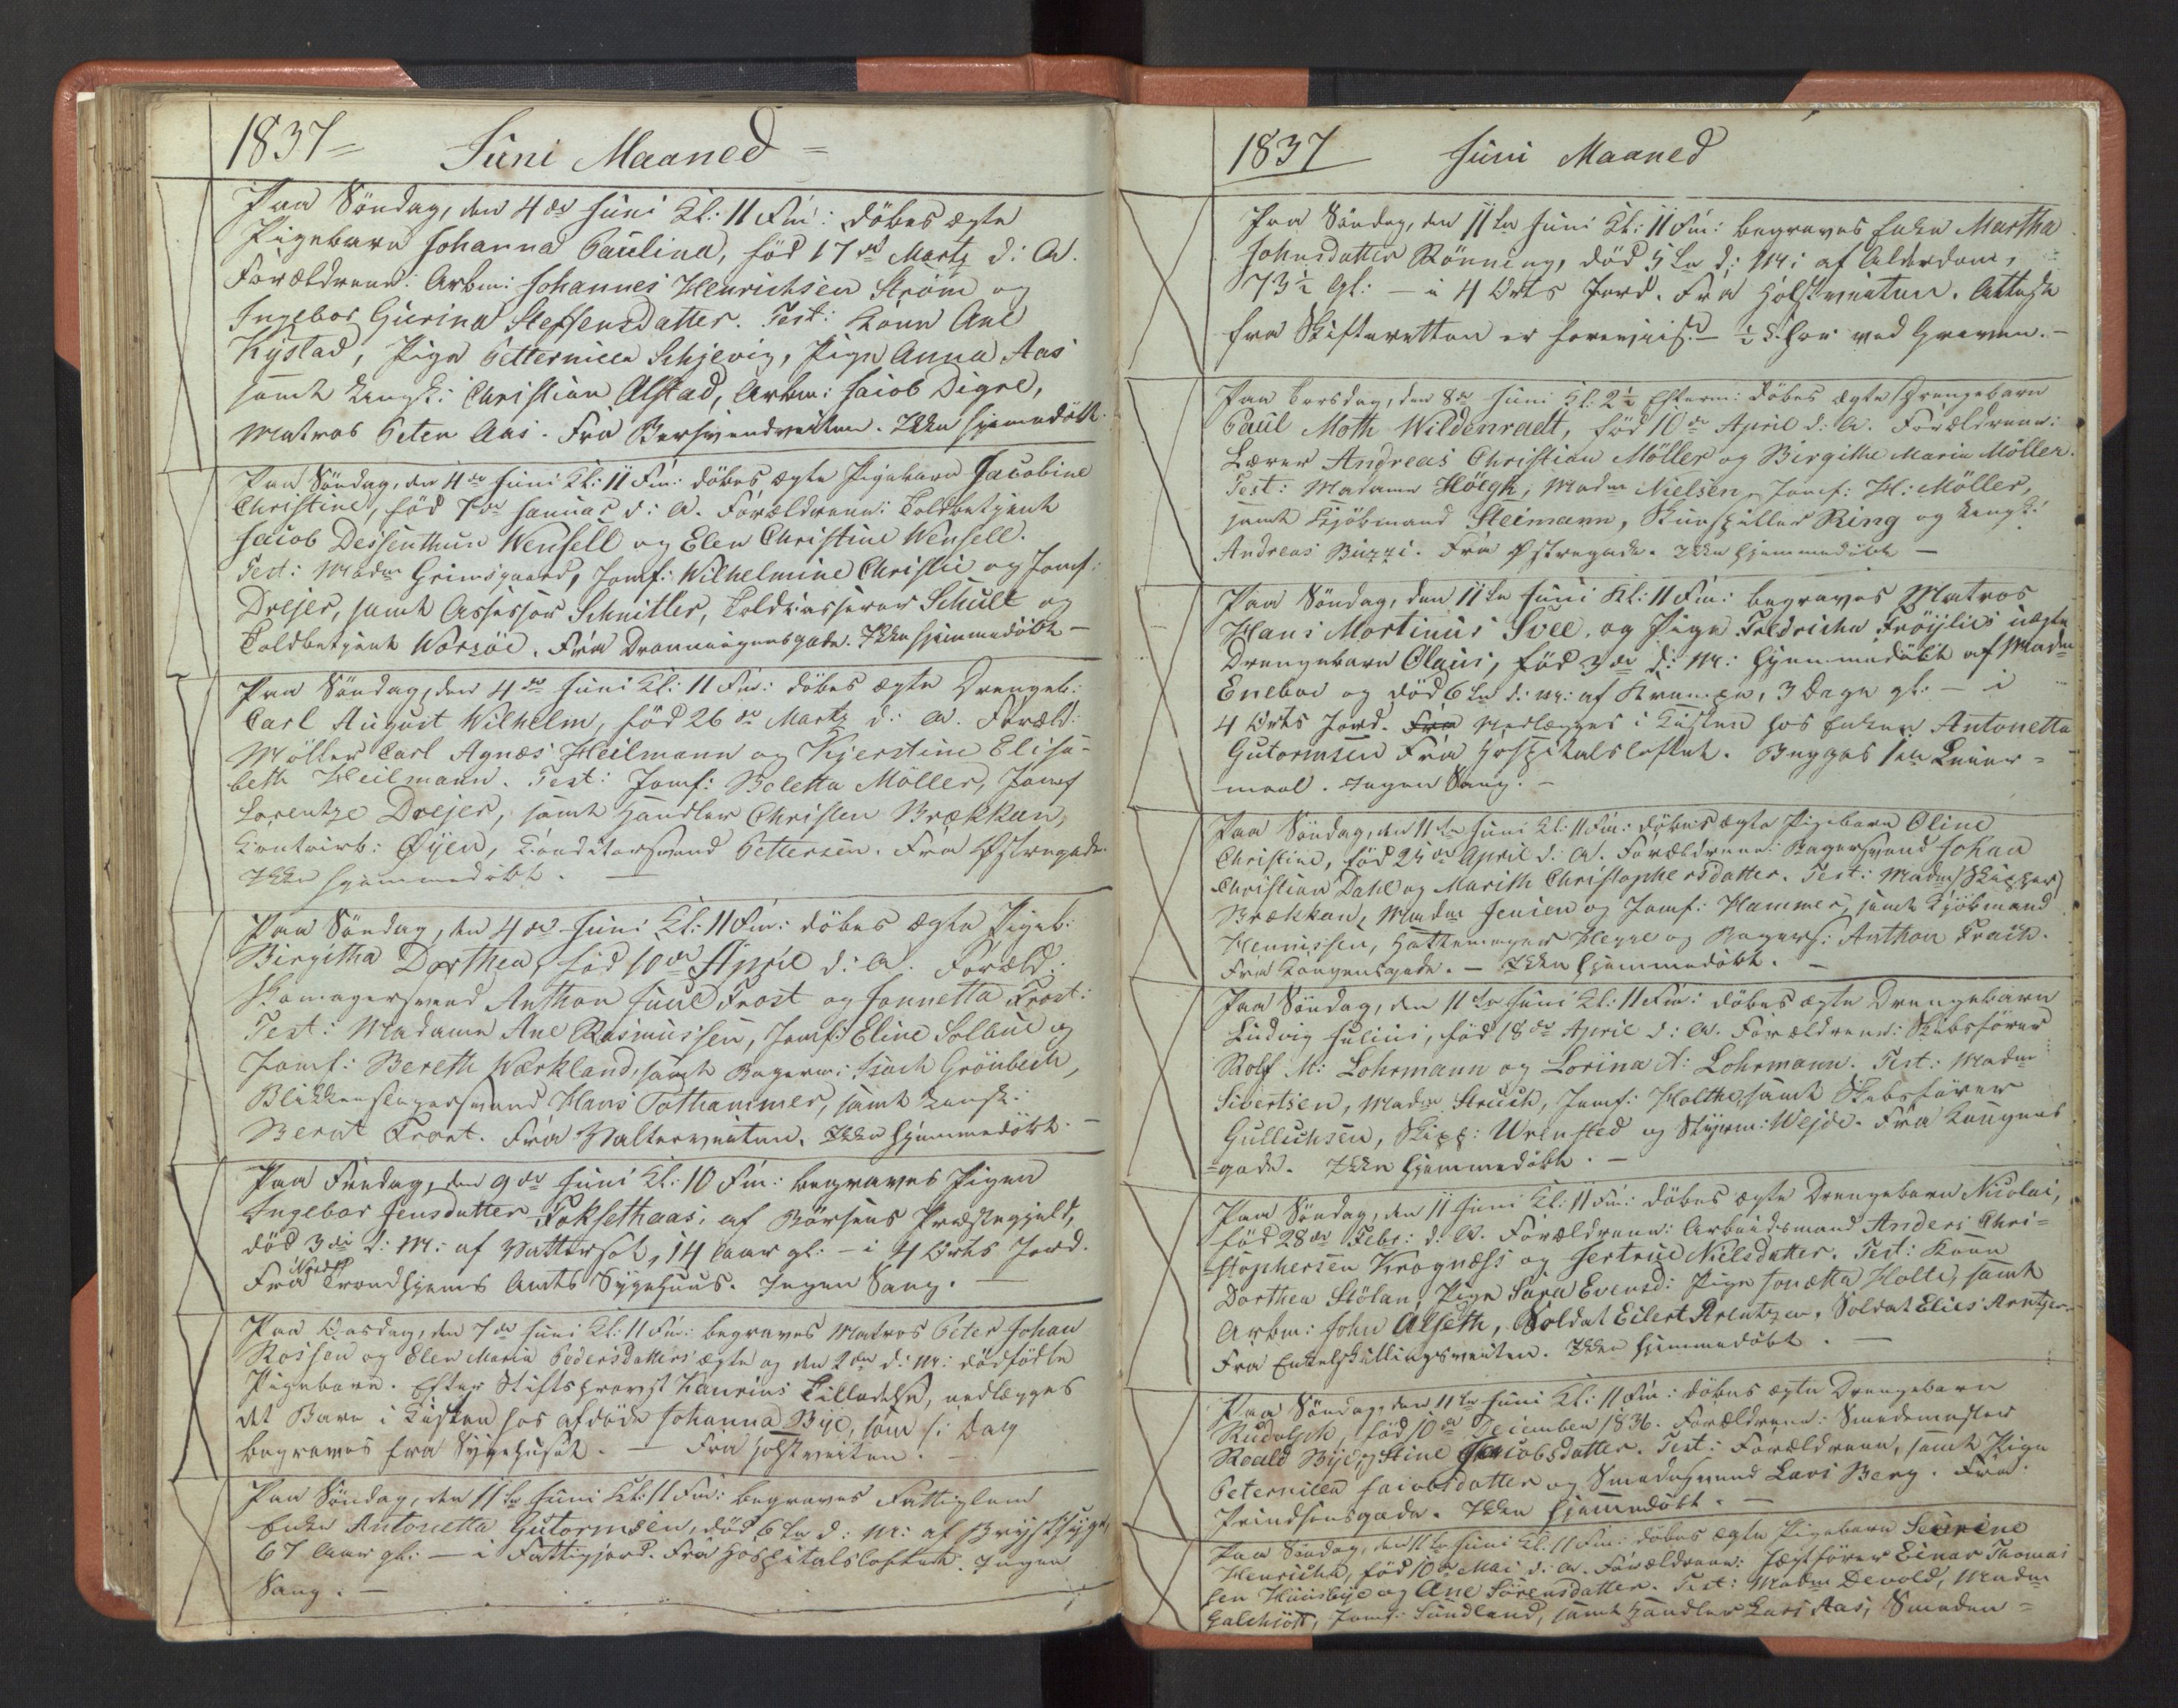 1837 = Juni Maaned =
Paa Söndag, den 4de Juni Kl: 11 Fm: döbes ægte
Pigebarn Johanna Paulina, föd 17de Martz d: A.
Forældrene: Arbm: Johannes Henrichsen Strøm og
Ingebor Gurina Steffensdatter. Test: Konn Ane
Kystad, Pige Petternicca Schjevig, Pige Anna Aas
samt Ungk: Christian Alstad, Arbm: Jacob Digre,
Matros Peter Aas. Fra Bersvendveiten. Ikke hjemmedöbt.
Paa Söndag, den 4de Juni Kl: 11 Fm: döbes ægte Pigebarn Jacobine
Christine, föd 7de Januar d: A. Forældrene: Toldbetjent
Jacob Dessenthun Wensell og Elen Christine Wensell.
Test: Madm Grimsgaard, Jomf: Wilhelmine Christie og Jomf:
Drejer, samt Assessor Schnitler, Toldkasserer Schult og
Toldbetjent Worsöe. Fra Dronningensgade. Ikke hjemmedöbt –
Paa Söndag, den 4de Juni Kl: 11 Fm: döbes ægte Drengeb:
Carl August Wilhelm, föd 26de Martz d: A. Foræld:
Möller Carl Agnæs Heilmann og Kjerstine Elisa-
beth Heilmann. Test: Jomf: Boletta Möller, Jomf
Lorentze Drejer, samt Handler Christen Brækkan,
Contoirb: Öyen, Conditorsvend Pettersen. Fra Østregade.
Ikke hjemmedöbt. –
Paa Söndag, den 4de Juni Kl: 11 Fm: döbes ægte Pigeb:
Birgitha Dorthea, föd 10de April d: A. Foræld:
Skomagersvend Anthon Juul Frost og Jonnetta Frost:
Test: Madame Ane Rasmussen, Jomf: Eline Solbue og
Jomf: Bereth Wærkland, samt Bagerm: Isach Grönbech,
Blikkenslagersvend Hans Tothammer, samt Ungk:
Bernt Frost. Fra Halterveiten. Ikke hjemmedöbt. –
Paa Fredag, den 9de Juni Kl: 10 Fm: begraves Pigen
Ingebor Jensdatter Foksethaas, af Börsens Præstegjeld,
död 3de d: M: af Vattersot, 14 Aar gl: – i 4 Orts Jord.
Fra Nordr Trondhjems Amts Sygehuus. Ingen Sang. –
Paa Onsdag, den 7de Juni Kl: 11 Fm: begraves Matros Peter Johan
Rossen og Elen Maria Pedersdatters ægte og den 2den d: M: dödfödte
Pigebarn. Efter Stiftsprovst Tilladelse, nedlægges
det Barn i Kisten hos afdöde Johanna Bye, som i Dag
begraves fra Sygehuset. – Fra Holstveiten. –
Paa Söndag, den 11te Juni Kl: 11 Fm: begraves Fattiglem
Enke Antonetta Gutormsen, död 6te d: M: af Brystsyge,
67 Aar gl: – i Fattigjord. Fra Hospitalsloftet. Ingen
Sang. –
1837 Juni Maaned
Paa Söndag, den 11te Juni Kl: 11 Fm: begraves Enke Martha
Johnsdatter Rönning, död 5te d: M: af Alderdom,
73½ Gl: – i 4 Orts Jord. Fra Holstveiten. Attest
fra Skifteretten er foreviist. –
Paa Torsdag, den 8de Juni Kl: 2½ Efterm: döbes ægte Drengebarn
Paul Moth Wildenradt, föd 10de April d: A. Forældrene:
Lærer Andreas Christian Möller og Birgithe Maria Möller.
Test: Madame Höegh, Madm Nielsen, Jomf: H: Möller,
samt Kjöbmand Steimann, Skuespiller Ring og Ungk:
Andreas Buzzi. Fra Østregade. Ikke hjemmedöbt –
Paa Söndag, den 11te Juni Kl: 11 Fm: begraves Matros
Hans Mortinus Svee, og Pige Fredricha Fröylies uægte
Drengebarn Olaus, föd 3de d: M: hjemmedöbt af Madm
Eneboe og död 6te d: M: af Krampe, 3 Dage gl: – i
4 Orts Jord. Fra Nedlægges i Kisten hos Enken Antonetta
Gutormsen Fra Hospitalsloftet. Begges 1ste Leier-
maal. Ingen Sang. –
Paa Söndag, den 11te Juni Kl: 11 Fm: döbes ægte Pigebarn Oline
Christine, föd 24de April d: A. Forældrene: Bagersvend Johan
Christian Dahl og Marith Christophersdatter. Test: Madm (Skipper)
Brækkan, Madm Jensen og Jomf: Hammer, samt Kjöbmand
Hennissen, Hattemager Heyre og Bagers: Anthon
Fra Kongensgade. – Ikke hjemmedöbt. –
Paa Söndag, den 11te Juni Kl: 11 Fm: döbes ægte Drengebarn
Ludvig Julius, föd 18de April d: A. Forældrene: Skibsförer
Rolf M: Lohrmann og Lorina A: Lohrmann. Test: Madm
Sivertsen, Madm Struch, Jomf: Holthe, samt Skibsförer
Gullichsen, Skipp: Wrensted og Styrm: Wejde. Fra Kongens
=gade. Ikke hjemmedöbt. –
Paa Söndag, den 11 Juni Kl: 11 Fm: döbes ægte Drengebarn Nicolai,
föd 28de Febr: d: A. Forældrene: Arbeidsmand Anders Chri=
stophersen Krognæss og Jertrue Nielsdatter. Test: Konn
Dorthea Stölan, Pige Sara Evensd: Pige Jonætta Holte, samt
Arbm: John Alseth, Soldat Eilert Arentzen, Soldat Elies Arntzen.
Fra Enkelskillingsveiten. Ikke hjemmedöbt. –
Paa Söndag, den 11te Juni Kl: 11 Fm: döbes ægte Drengebarn
Rudolph, föd 10de December 1836. Forældrene: Smedemester
Roald Bye og Stine Jacobsdatter. Test: Forældrene, samt Pige
Peternicea Jacobsdatter og Smedesvend Lars Berg. Fra
Prindsensgade. Ikke hjemmedöbt. –
Paa Söndag, den 11te Juni Kl: 11 Fm: döbes ægte Pigebarn Severine
Henricha, föd 10de Mai d: A. Forældrene: Jægtförer Einar Thomas
sen Huusbye og Ane Sörensdatter. Test: Madm Devold, Madm
Galchiöt, Jomf: Sundland, samt Handler Lars Aas, Smeden=